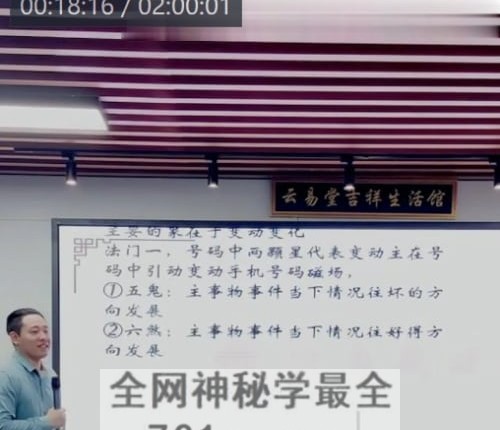 00:18:16 / 02:00:01
云易堂吉祥生活馆
主要的象在于变动变化
法门一，号码中两颗星代表变动主在号
码中引动变动手机号码磁场。
①五鬼：主事物事件当下情况往坏的方
向发展
②六煞：主事物事件当下情况往好得方
向发展
全网神秘学最全